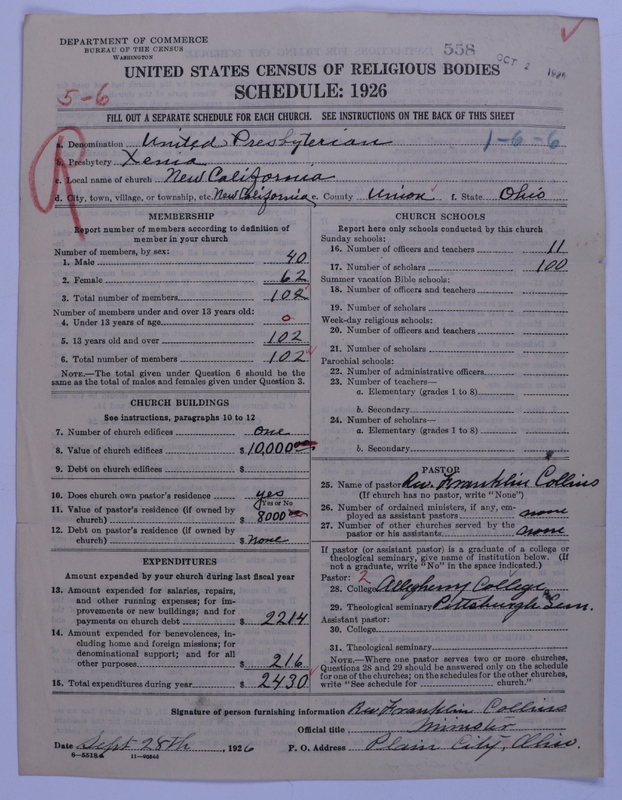 558
OCT 2 1926
DEPARTMENT OF COMMERCE
BUREAU OF THE CENSUS
WASHINGTON
UNITED STATES CENSUS OF RELIGIOUS BODIES
SCHEDULE: 1926
5-6
FILL OUT A SEPARATE SCHEDULE FOR EACH CHURCH. SEE INSTRUCTIONS ON THE BACK OF THIS SHEET
a. Denomination United Presbyterian 1-6-6
b. Presbytery Xenia
c. Local name of church New California
d. City, town, village, or township, etc. New California e. County Union f. State Ohio
MEMBERSHIP
Report number of members according to definition of
member in your church
Number of members, by sex:
1. Male 40
2. Female 62
3. Total number of members 102
Number of members under and over 13 years old:
4. Under 13 years of age 0
5. 13 years old and over 102
6. Total number of members 102
NOTE.—The total given under Question 6 should be
the same as the total of males and females given under Question 3.
CHURCH BUILDINGS
See instructions, paragraphs 10 to 12
7. Number of church edifices One
8. Value of church edifices $10,000
9. Debt on church edifices $
10. Does church own pastor's residence yes
Yes or No
11. Value of pastor's residence (if owned by
church) $ 8000
12. Debt on pastor's residence (if owned by
church) $ None
EXPENDITURES
Amount expended by your church during last fiscal year
13. Amount expended for salaries, repairs,
and other running expenses; for im-
provements or new buildings; and for
payments on church debt $ 2214
14. Amount expended for benevolences, in-
cluding home and foreign missions; for
denominational support; and for all
other purposes $ 216
15. Total expenditures during year $ 2430
CHURCH SCHOOLS
Report here only schools conducted by this church
Sunday schools:
16. Number of officers and teachers 11
17. Number of scholars 100
Summer vacation Bible schools:
18. Number of officers and teachers
19. Number of scholars
Week-day religious schools:
20. Number of officers and teachers
21. Number of scholars
Parochial schools:
22. Number of administrative officers
23. Number of teachers—
a. Elementary (grades 1 to 8)
b. Secondary
24. Number of scholars—
a. Elementary (grades 1 to 8)
b. Secondary
PASTOR
25. Name of pastor Rev. Franklin Collins
(If church has no pastor, write "None")
26. Number of ordained ministers, if any, em-
ployed as assistant pastors none
27. Number of other churches served by the
pastor or his assistants none
If pastor (or assistant pastor) is a graduate of a college or
theological seminary, give name of institution below. (If
not a graduate, write "No" in the space indicated.)
Pastor: 2
28. College Allegheny College
29. Theological seminary Pittsburgh Sem.
Assistant pastor:
30. College
31. Theological seminary
NOTE.—Where one pastor serves two or more churches,
Questions 28 and 29 should be answered only on the schedule
for one of the churches; on the schedules for the other churches,
write "See schedule for church."
Signature of person furnishing information Rev Franklin Collins
Official title Minister
Date Sept 28th, 1926 P. O. Address Plain City, Ohio.
8-5518a 11-9056d